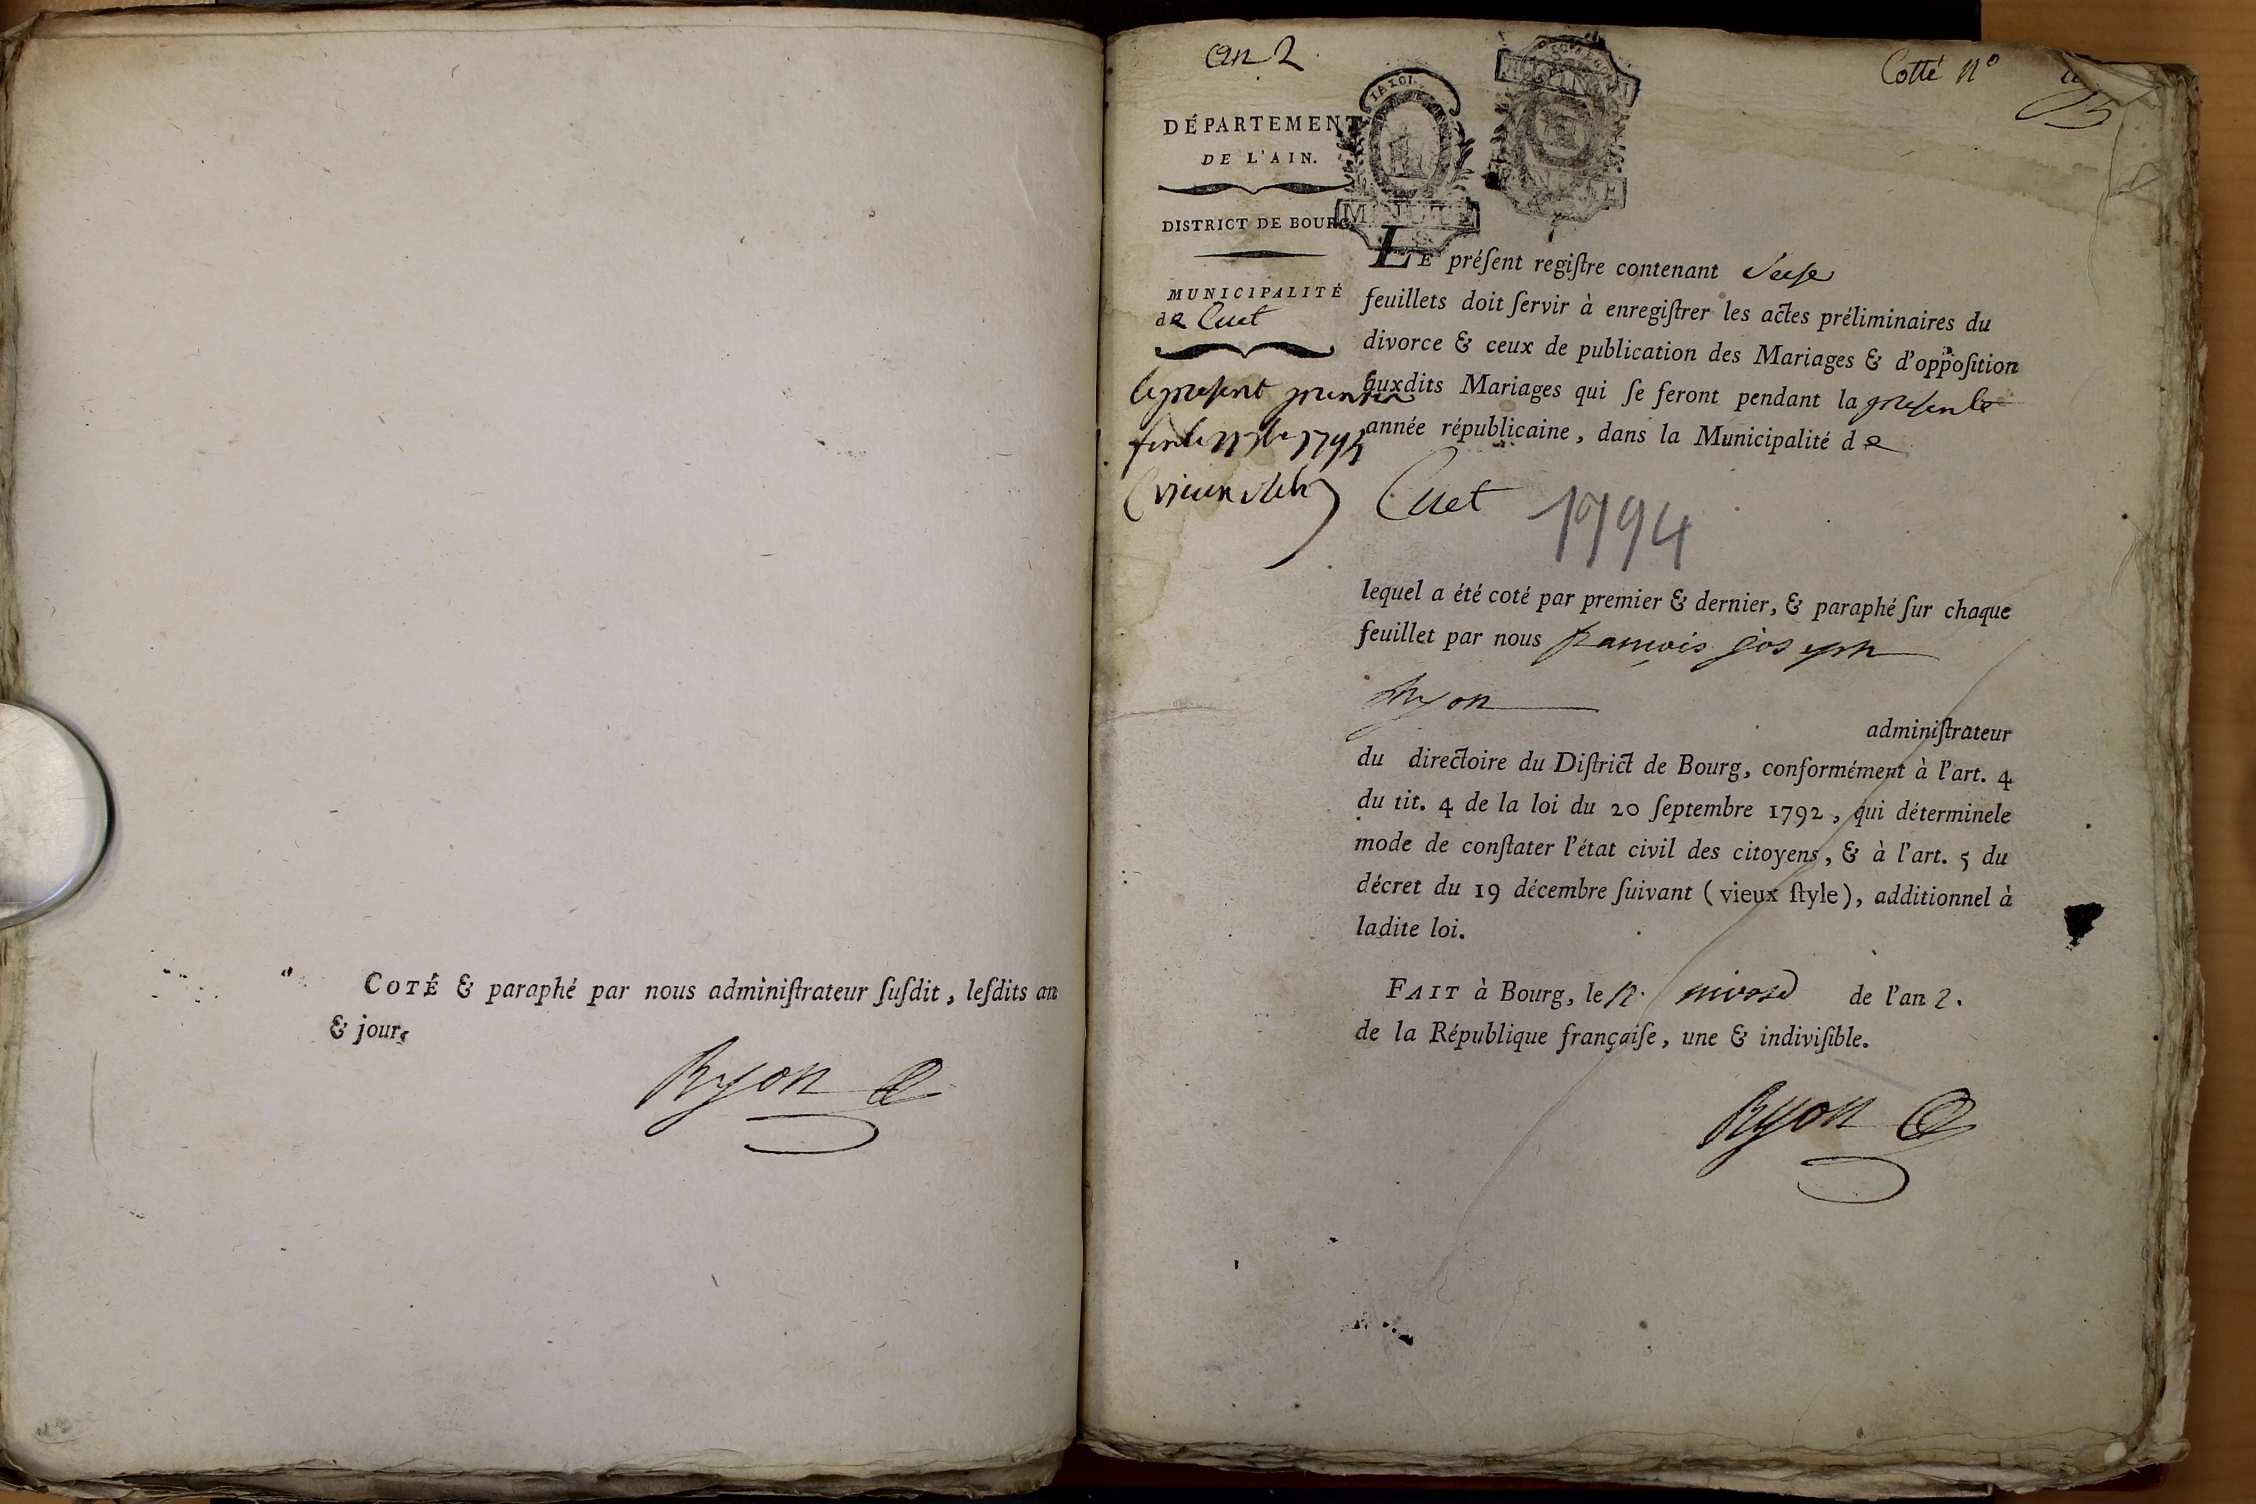 COTÉ & paraphé par nous adminiſtrateur ſuſdit, leſdits an
& jour,
Ryon
an 2
Cotté n°
LA LOI
DÉPARTEMENT
DE L'AIN.
DISTRICT DE BOURG
MUNICIPALITÉ
de Cuet
le present
(vieux stile)
LE préſent regiſtre contenant
feuillets doit ſervir à enregiſtrer les actes préliminaires du
divorce & ceux de publication des Mariages & d'oppoſition
auxdits Mariages qui ſe feront pendant la presente
année républicaine, dans la Municipalité de
Cuet 1794
lequel a été coté par premier & dernier, & paraphé ſur chaque
feuillet par nous françois joseph
Ryon
adminiſtrateur
du directoire du Diſtrict de Bourg, conformément à l'art. 4
du tit. 4 de la loi du 20 ſeptembre 1792, qui déterminele
mode de conſtater l'état civil des citoyens, & à l'art. 5 du
décret du 19 décembre ſuivant (vieux ſtyle), additionnel à
ladite loi.
FAIT à Bourg, le 12 nivose de l'an 2.
de la République françaiſe, une & indiviſible.
Ryon